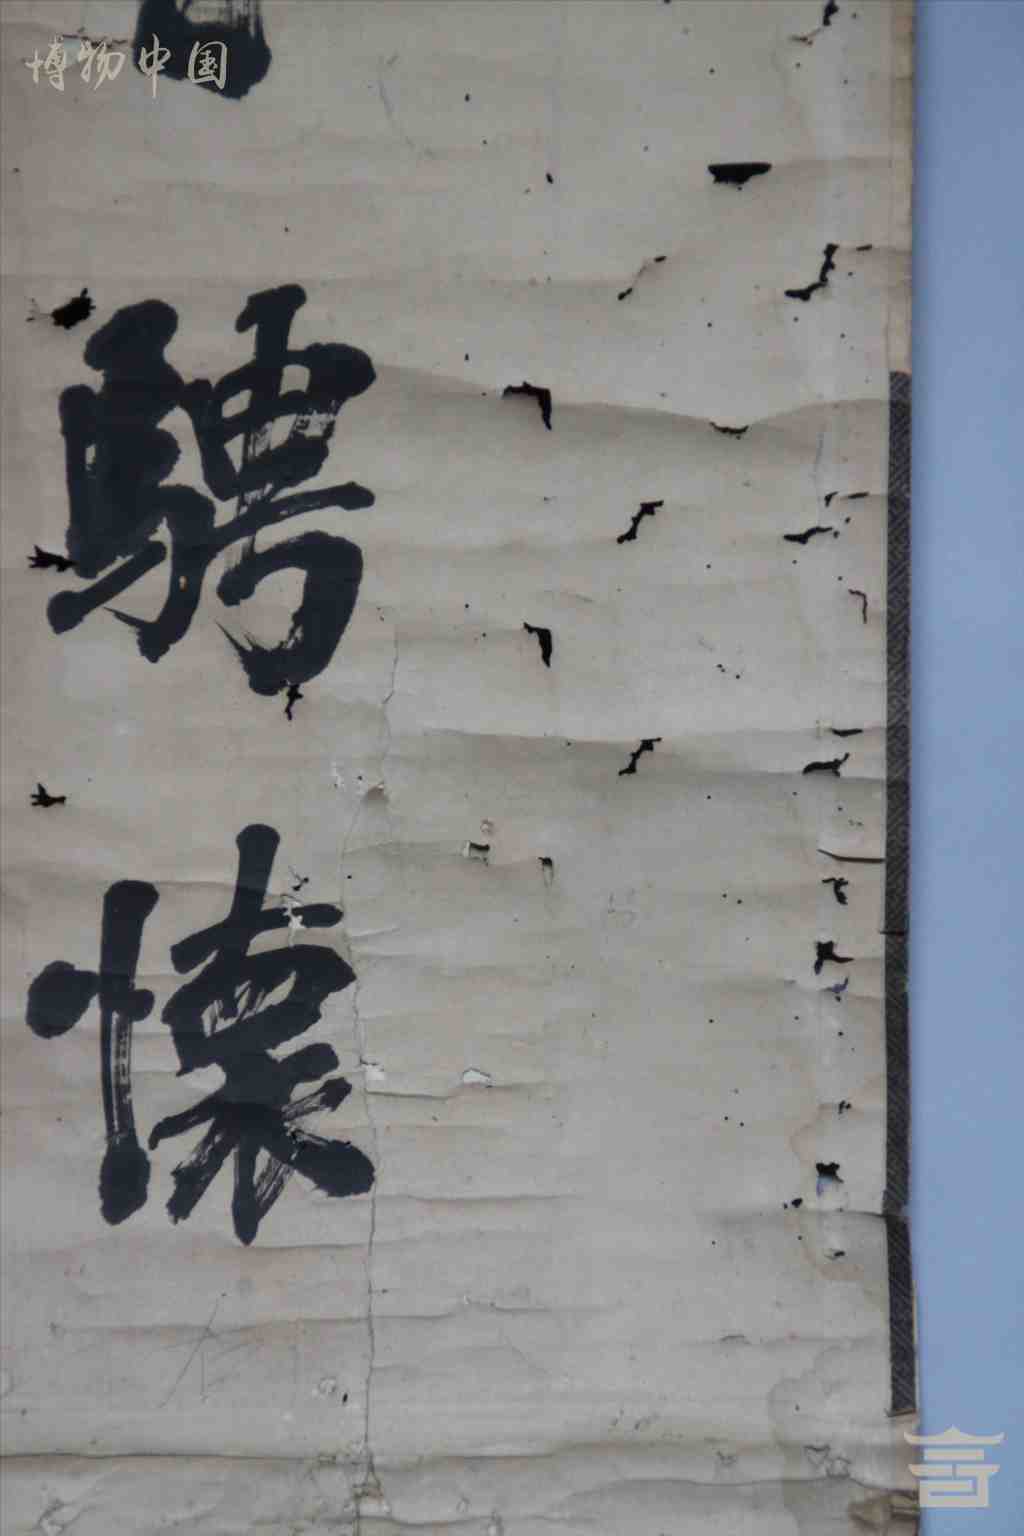 博物中国
騁
懷